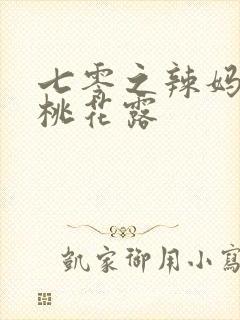 七零之辣妈
桃花露
凱家御用小寫